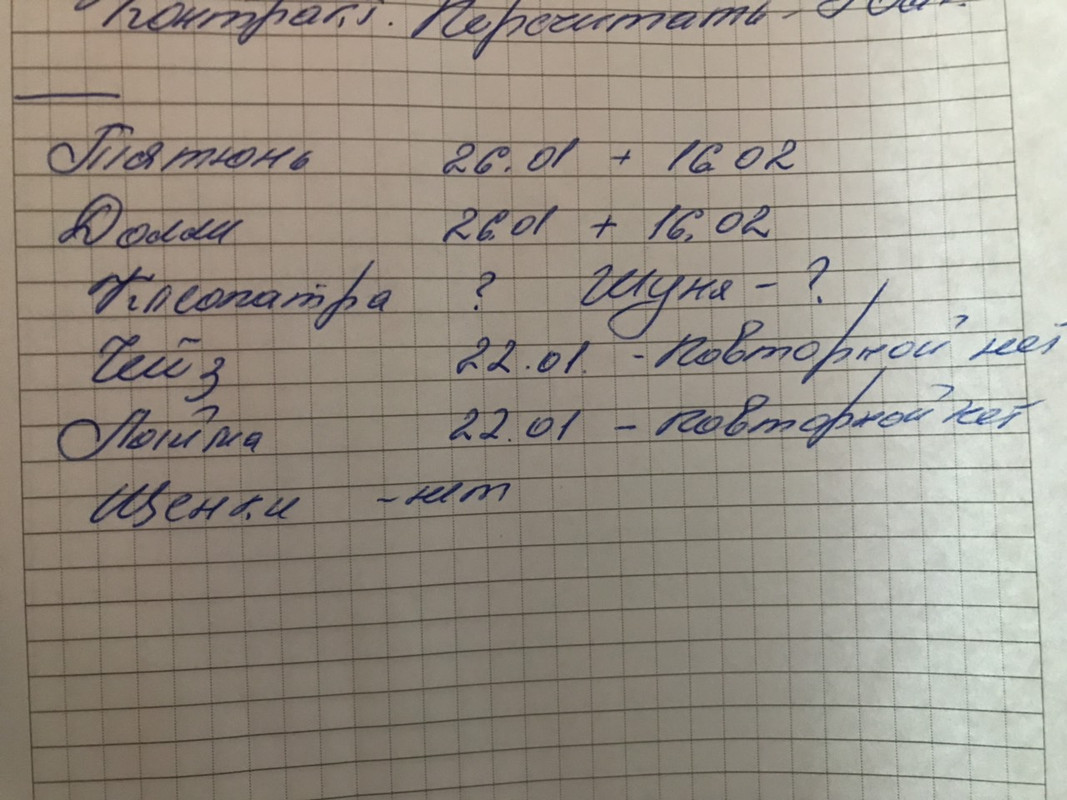 Контракт. Пересчитать -
Пятюнь 26.01 + 16.02
Долли 26.01 + 16.02
Клеопатра ? Шуня - ?
Чейз 22.01. - повторной нет
Лайма 22.01 - повторной нет
Щенки - нет